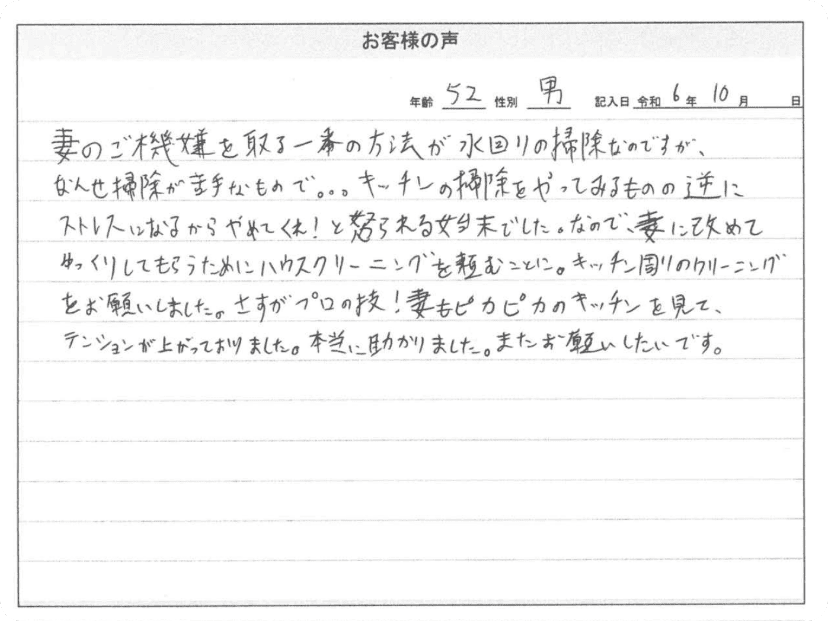 お客様の声
年齢 52 性別 男 記入日 令和 6 年 10 月 日
妻のご機嫌を取る一番の方法が水回りの掃除なのですが、
なんせ掃除が苦手なもので。。。キッチンの掃除をやってみるものの逆に
ストレスになるからやめてくれ!と怒られる始末でした。なので、妻に改めて
ゆっくりしてもらうためにハウスクリーニングを頼むことに。キッチン周りのクリーニング
をお願いしました。さすがプロの技!妻もピカピカのキッチンを見て、
テンションが上がっておりました。本当に助かりました。またお願いしたいです。